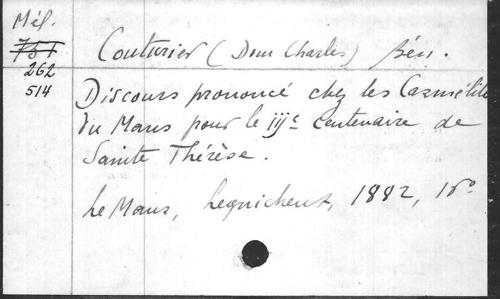 Mél.
751
262
514
Couturier (Dom Charles) Bén.
Discours prononcé chez les Carmélites
du Mans pour le iije Centenaire de
Sainte Thérèse.
Le Mans, Leguicheux, 1882, 16°